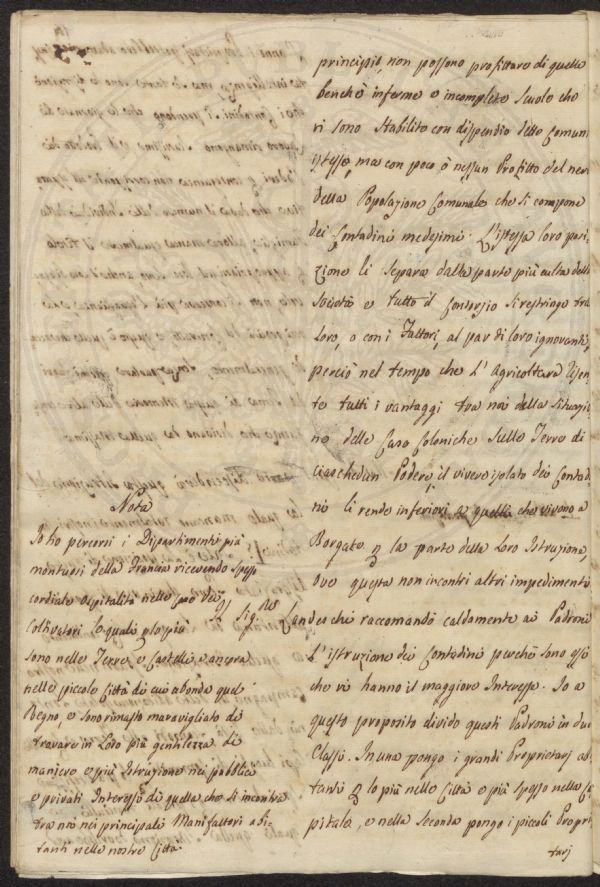 principio, non possono profittare di quelle
benchè inferme e incomplete Scuole che
vi sono Stabilite con dispendio dello Comun
istesso, ma con poco ò nessun Profitto del
della Popolazione Comunale che si compone
dei Contadini medesimi. L'istessa loro posi-
zione li Separa dalla parte più culta della
Società e tutto il Consorzio si restringe tra
loro, o con i Fattori, al par di loro ignoranti,
perciò nel tempo che L'Agricoltura Sen-
te tutti i vantaggi tra noi della Situazio
ne delle Case Coloniche Sulle Terre di
ciaschedun Podere, il vivere isolato dei Contad
ni li rende inferiori a quelli che vivono a
Borgate p la parte della Loro Istruzione,
ove questa non incontri altri impedimenti
Il Sig: Landeschi raccomandò caldamente ai Padroni
L'istruzione dei Contadini perchè sono essi
che vi hanno il maggiore Interesse. Io a
questo proposito divido questi Padroni in due
Classi. In una pongo i grandi Proprietarj abi
tanti p lo più nelle Città e più spesso nella Ca
pitale, e nella Seconda pongo i piccoli Propri
tarj
Nota
Io ho percorsi i Dipartimenti più
montuosi della Francia ricevendo Spesso
cordiale ospitalità nelle case dei
Coltivatori le quali p lo più
sono nelle Terre, e Castelli, e ancora
nelle piccole Città di cui abonda quel
Regno, e sono rimasto maravigliato di
trovare in Loro più gentilezza di
maniere e più Istruzione nei pubblici
e privati Interessi di quella che si incontra
tra noi nei principali Manifattori abi-
tanti nelle nostre Città.